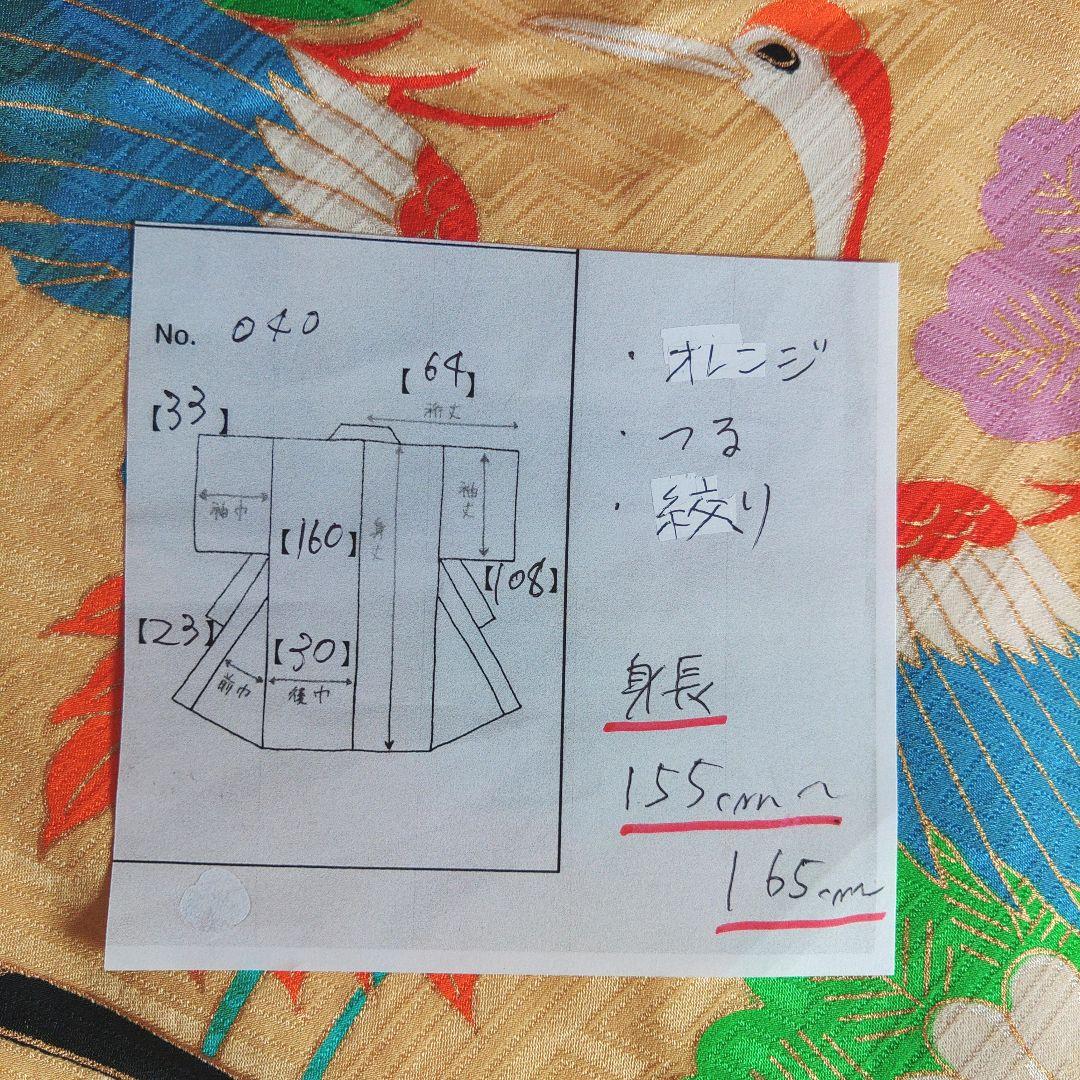 No. 040
【64】
裄丈
【33】
袖巾
袖丈
身丈
【160】
【108】
【23】
前巾
【30】
後巾
・オレンジ
・つる
・絞り
身長
155cm〜
165cm